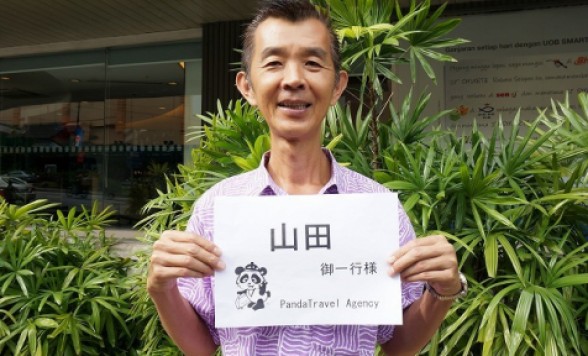 Ganjaran setiap hari dengan UOB SMART
山田
御一行様
PandaTravel Agency